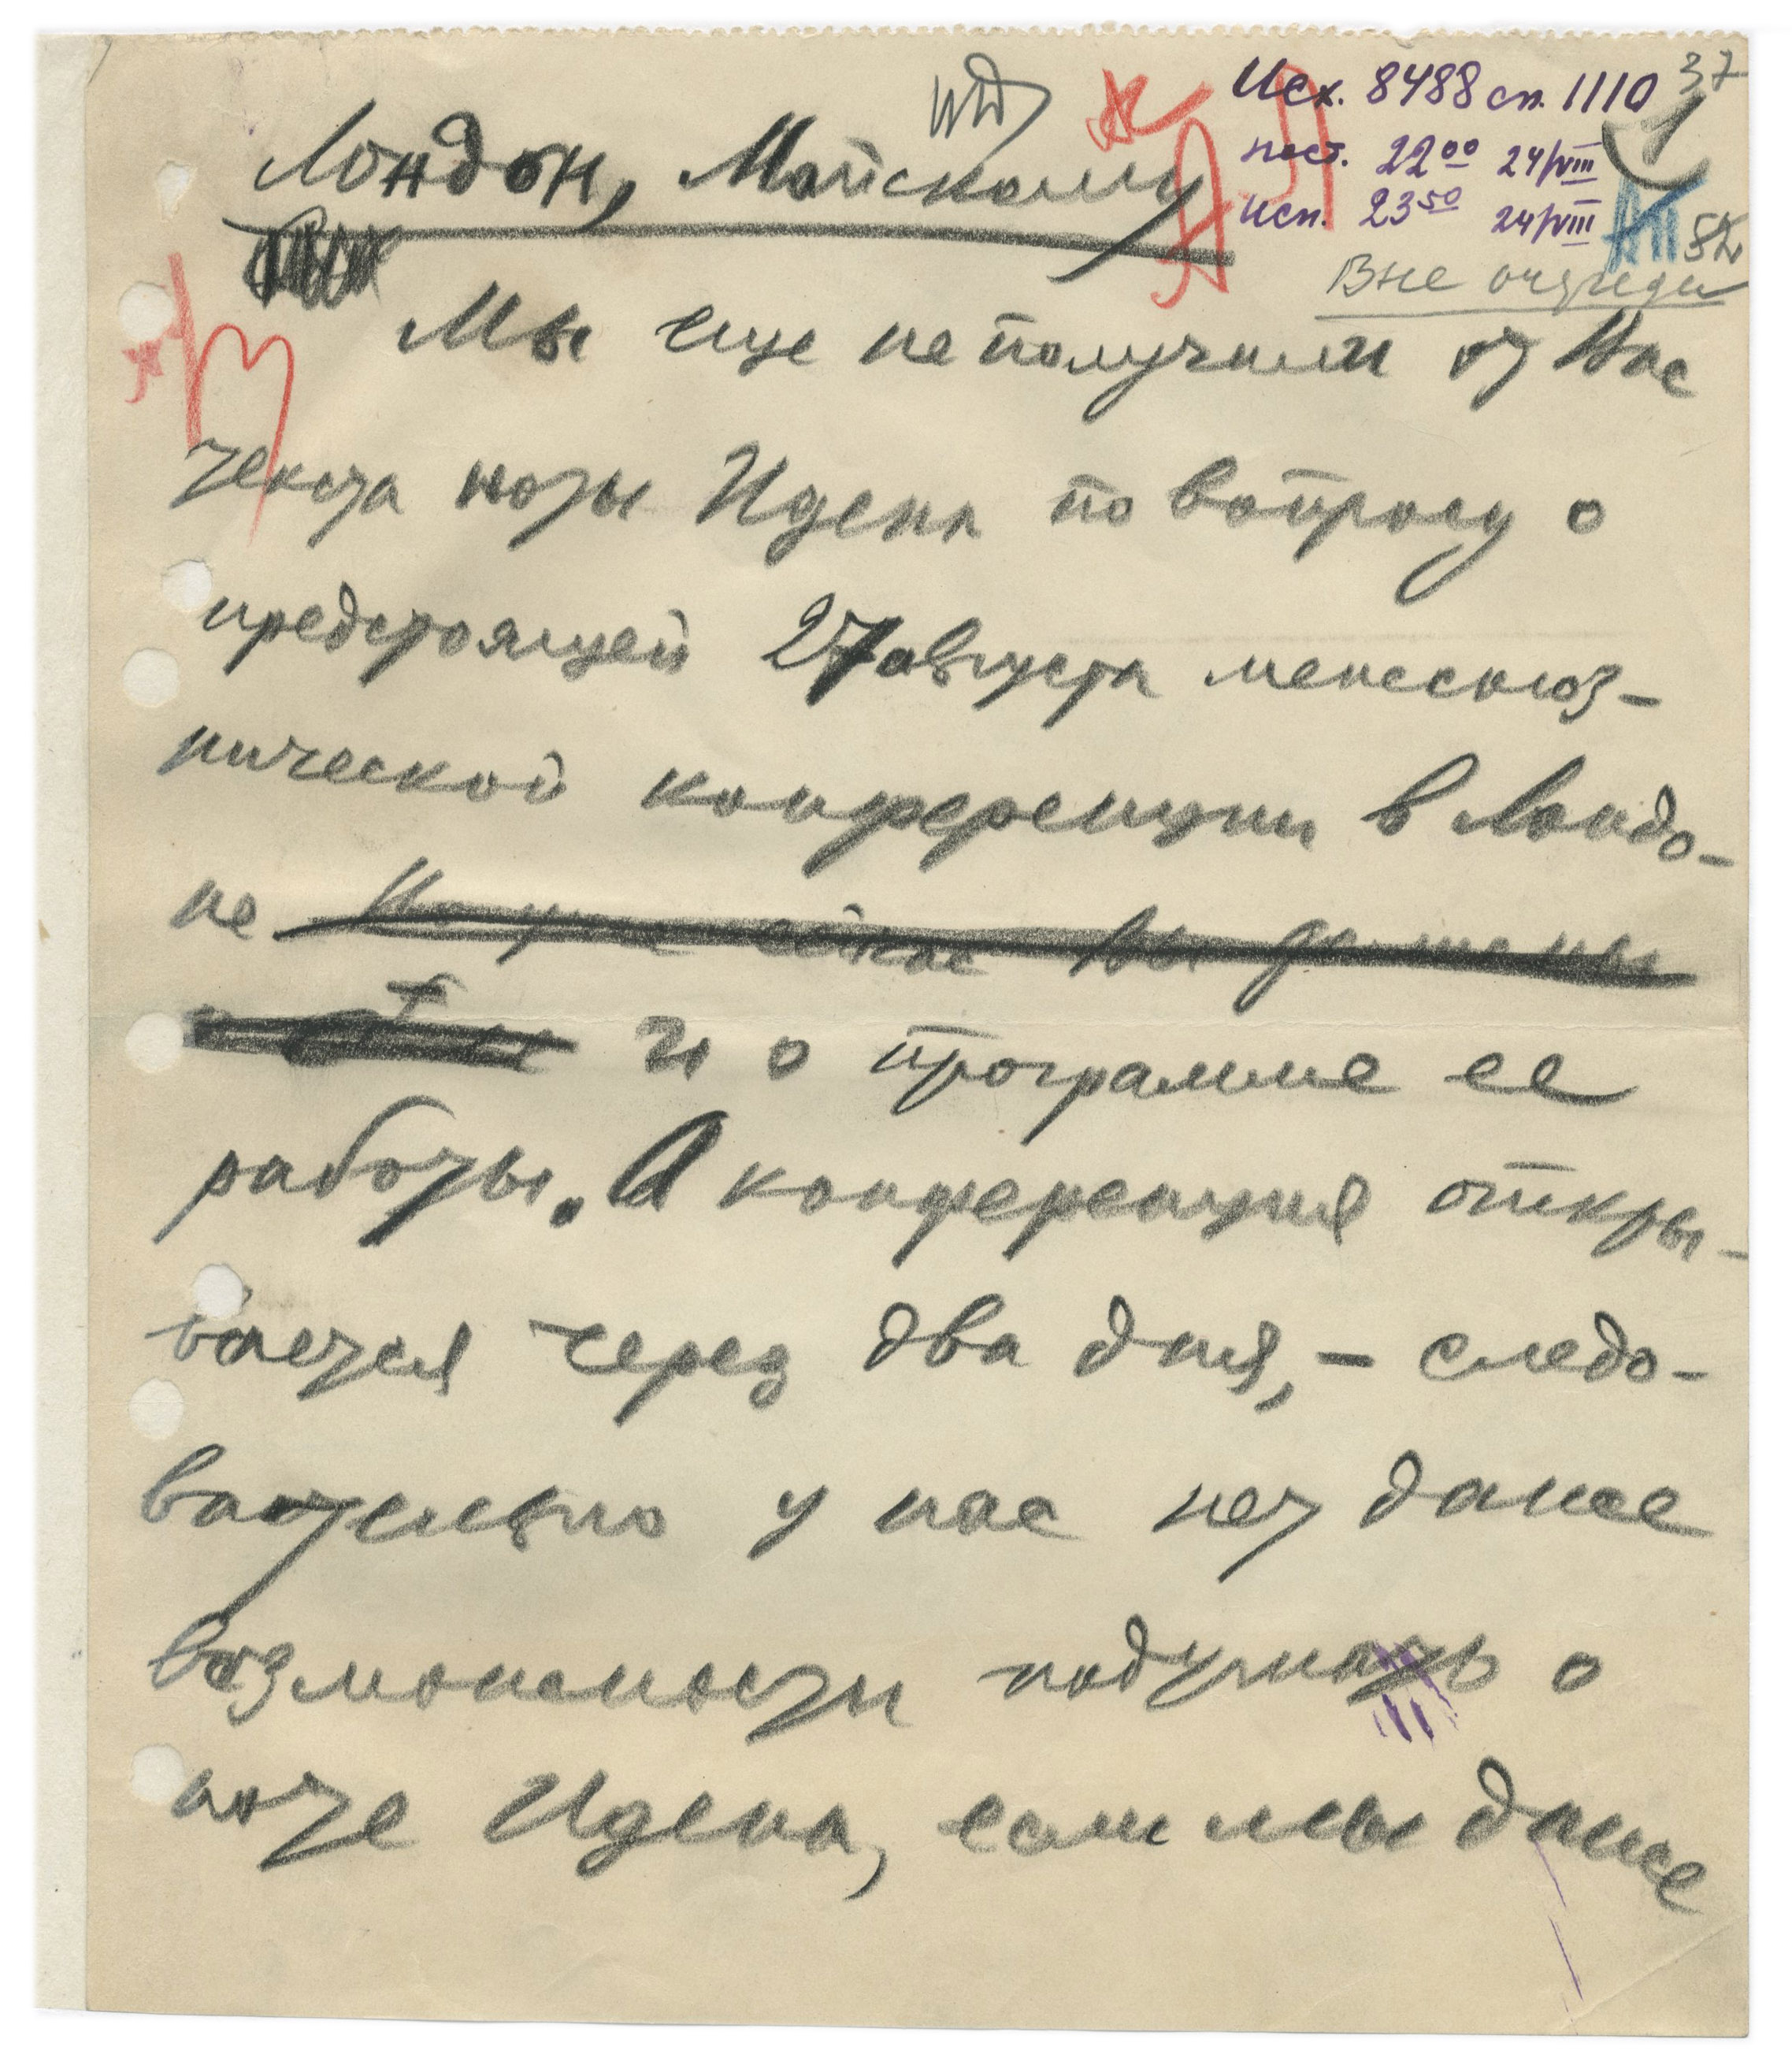 37
Исх. 8488 сп. 1110
пост. 22⁰⁰ 24/VIII
исп. 23⁵⁰ 24/VIII
Вне очереди
Лондон, Майскому
Мы еще не получили от Вас
текста ноты Идена по вопросу о
предстоящей 27 августа межсоюз-
нической конференции в Лондо-
не
и о программе ее
работы. А конференция откры-
вается через два дня, – следо-
вательно у нас нет даже
возможности подумать о
ноте Идена, если мы даже